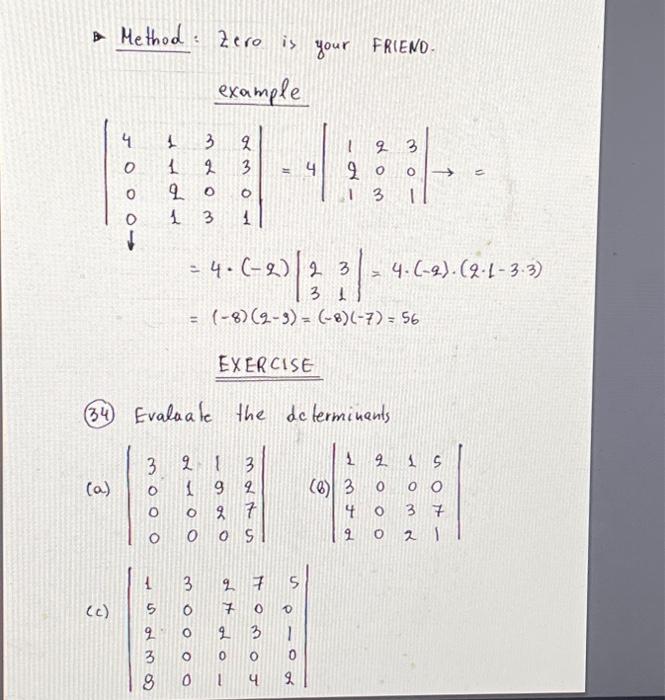 ▸ Method : Zero is your FRIEND.
example
| 4 1 3 2 |
| 0 1 2 3 |
| 0 2 0 0 |
| 0 1 3 1 |
↓
= 4
| 1 2 3 |
| 2 0 0 | → =
| 1 3 1 |
= 4 · (-2) | 2 3 | = 4·(-2)·(2·1-3·3)
| 3 1 |
= (-8)(2-9) = (-8)(-7) = 56
EXERCISE
(34) Evaluate the determinants
(a)
| 3 2 1 3 |
| 0 1 9 2 |
| 0 0 2 7 |
| 0 0 0 5 |
(b)
| 1 2 1 5 |
| 3 0 0 0 |
| 4 0 3 7 |
| 2 0 2 1 |
(c)
| 1 3 2 7 5 |
| 5 0 7 0 0 |
| 2 0 2 3 1 |
| 3 0 0 0 0 |
| 8 0 1 4 2 |